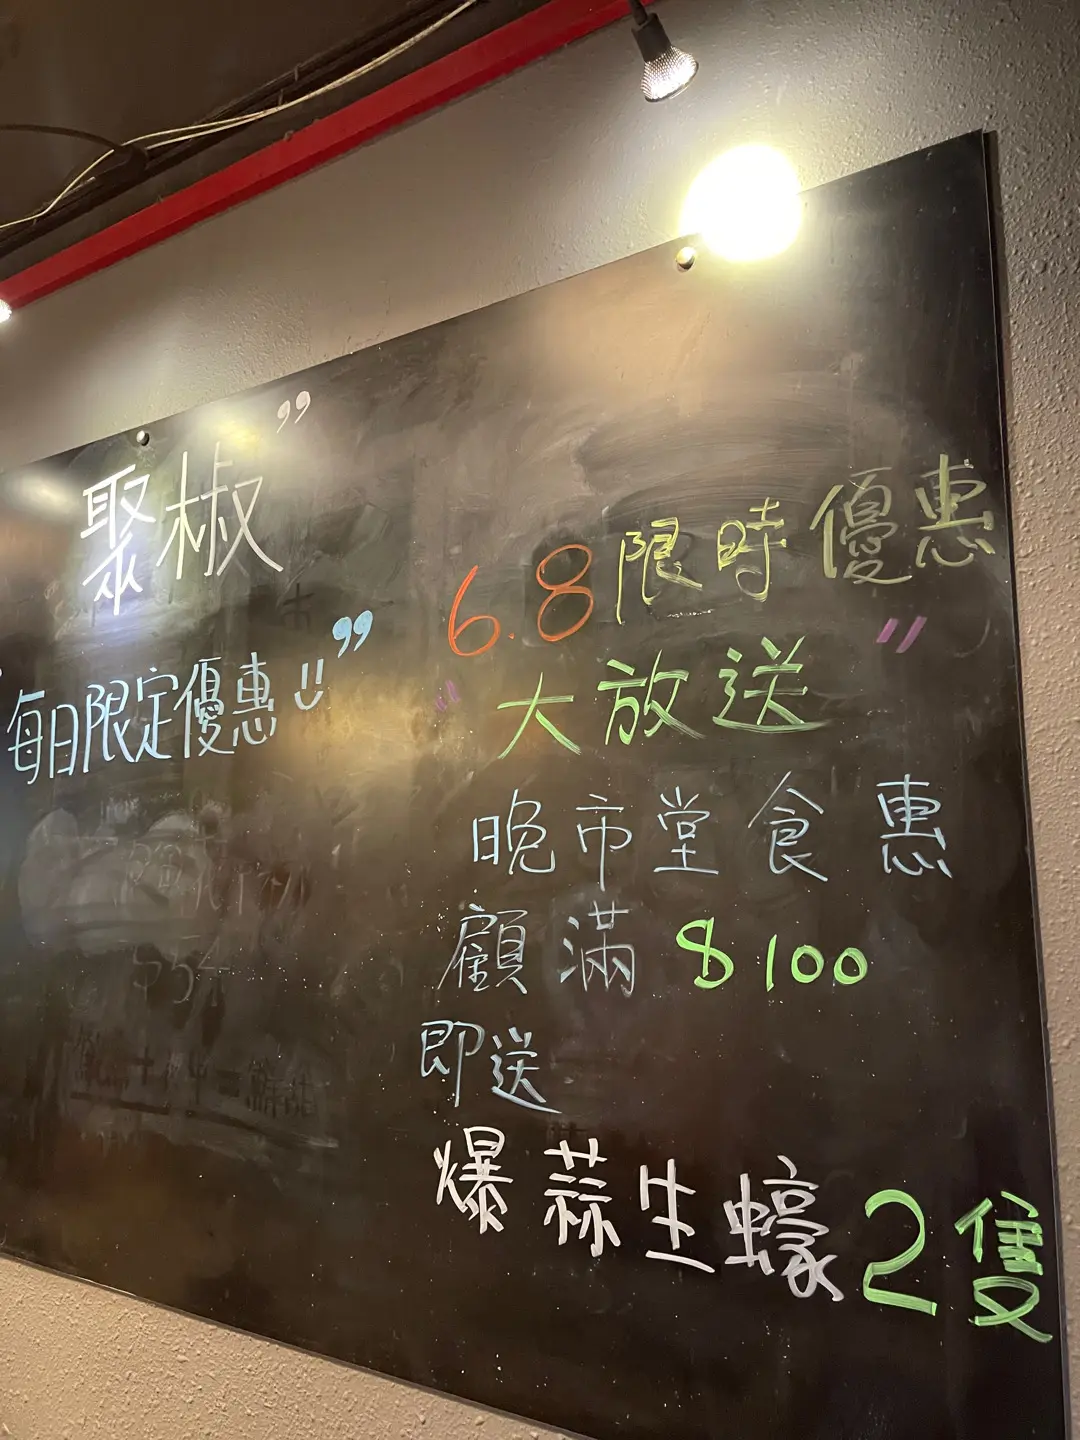 聚椒”
每日限定優惠”
6.8限時優惠
"大放送"
晚市堂食惠
顧滿$100
即送
爆蒜生蠔2隻